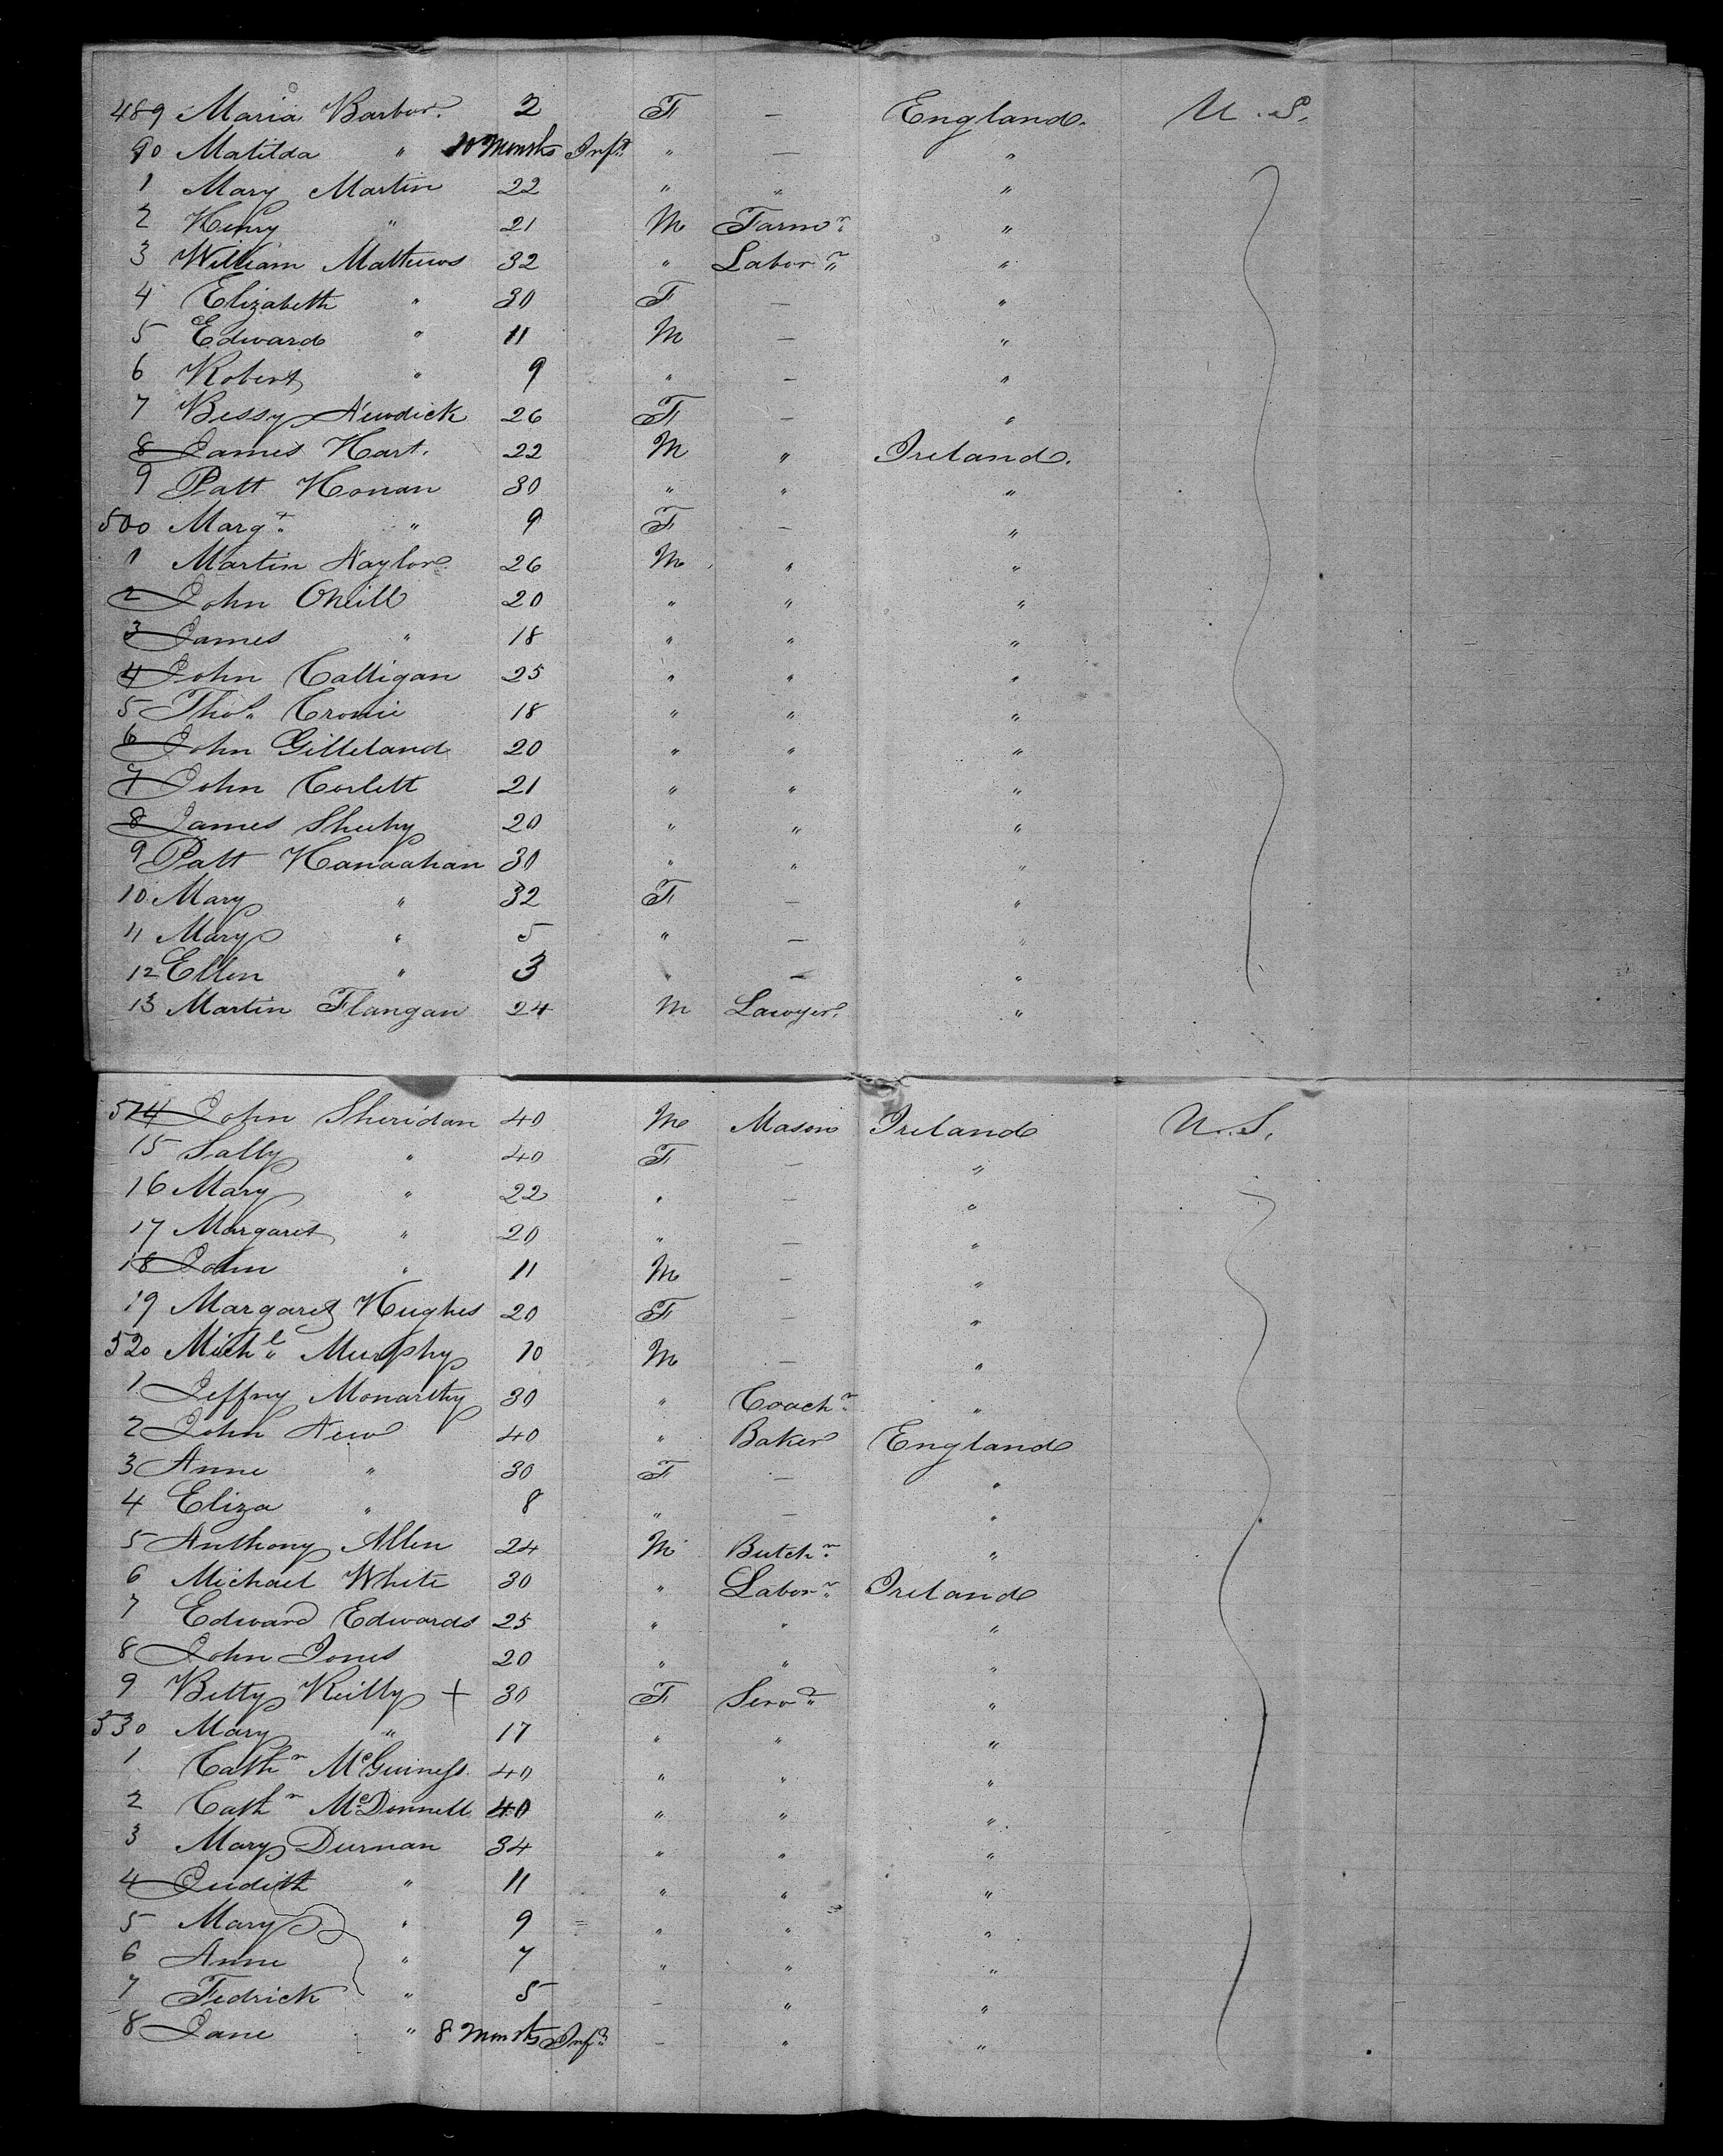 489 Maria Barbor. 2 F — England. U.S.
90 Matilda " 10 Months Inft " — "
1 Mary Martin 22 " " "
2 Henry " 21 M Farmr "
3 William Mathews 32 " Laborr "
4 Elizabeth " 30 F — "
5 Edward " 11 M — "
6 Robert " 9 " — "
7 Bessy Newdick 26 F — "
8 James Hart. 22 M " Ireland.
9 Patt Honan 30 " " "
500 Margt " 9 F — "
1 Martin Naylor 26 M " "
2 John Oneill 20 " " "
3 James " 18 " " "
4 John Calligan 25 " " "
5 Thos Cronie 18 " " "
6 John Gilleland 20 " " "
7 John Corlett 21 " " "
8 James Sheehy 20 " " "
9 Patt Hanaahan 30 " " "
10 Mary " 32 F — "
11 Mary " 5 " — "
12 Ellen " 3 " — "
13 Martin Flangan 24 M Lawyer. "
514 John Sheridan 40 M Mason Ireland U.S.
15 Sally " 40 F — "
16 Mary " 22 " — "
17 Margaret " 20 " — "
18 John " 11 M — "
19 Margaret Hughes 20 F — "
520 Michl Murphy 10 M — "
1 Jeffry Monarthy 30 " Coachn "
2 John New 40 " Baker England
3 Anne " 30 F — "
4 Eliza " 8 " — "
5 Anthony Allen 24 M Butchr "
6 Michael White 30 " Laborr Ireland
7 Edward Edwards 25 " " "
8 John Jones 20 " " "
9 Betty Reilly + 30 F Servt "
530 Mary " 17 " " "
1 Cathn McGuiness 40 " " "
2 Cathn McDonnell 40 " " "
3 Mary Durnan 34 " " "
4 Judith " 11 " " "
5 Mary " 9 " " "
6 Anne " 7 " " "
7 Fedrick " 5 — " "
8 Jane " 8 Months Inft — " "